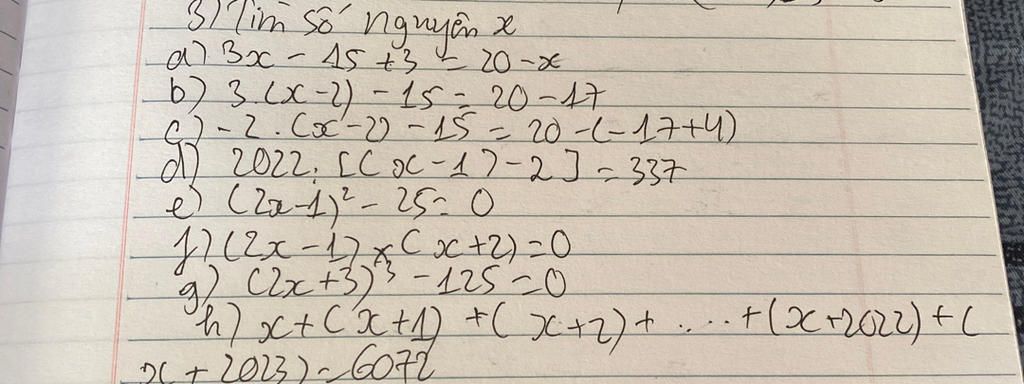 3) Tìm số nguyên x
a) 3x - 15 + 3 = 20 - x
b) 3.(x-2) - 15 = 20 - 17
c) -2.(x-2) - 15 = 20 - (-17+4)
d) 2022:[(x-1)-2] = 337
e) (2x-1)² - 25 = 0
f) (2x-1) x (x+2) = 0
g) (2x+3)³ - 125 = 0
h) x + (x+1) + (x+2) + ..... + (x+2022) + (
x + 2023) = 6072